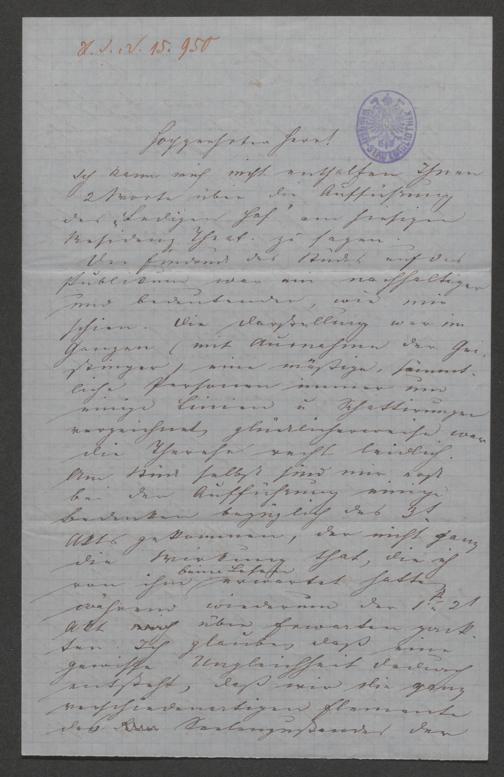 H. I. N. 15.950
WIENER STADTBIBLIOTHEK
Hochgeehrter Herr!
Ich kann mich nicht enthalten Ihnen
2 Worte über die Aufführung
des „Ledigen Hof" am hiesigen
Residenz Theat. zu sagen.
Der Eindruck des Stückes auf das
Publikum war ein nachhaltiger
und bedeutender, wie mir
schien. Die Darstellung war im
Ganzen (mit Ausnahme der Gei-
stinger) eine mäßige, sämmt-
liche Personen immer um
einige Linien u Schattirungen
verzeichnet, glücklicherweise war
die Therese recht leidlich.
Am Stück selbst sind mir erst
bei der Aufführung einige
Bedenken bezüglich des 3t
Akts gekommen, der nicht ganz
die Wirkung that, die ich
von ihm beim Lesen erwartet hatte
während wiederum der 1t 2t
Akt noch über Erwarten pack-
ten Ich glaube, daß eine
gewisse Ungleichheit dadurch
entsteht, daß wir die ganz
verschiedenartigen Elemente
des Seelenzustandes der